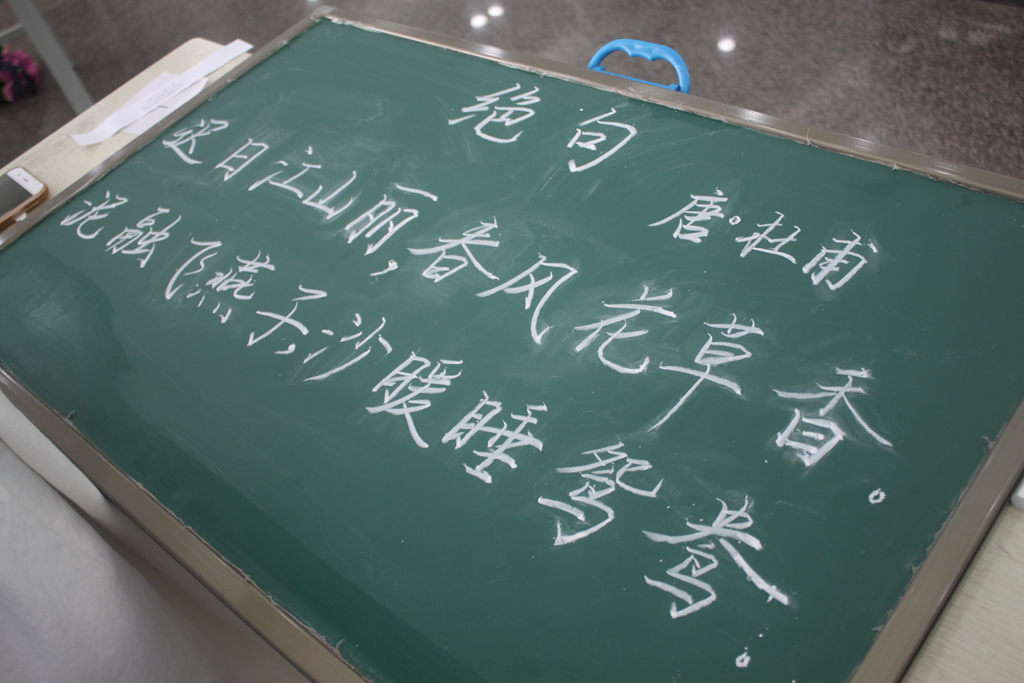 绝句
唐。杜甫
迟日江山丽,春风花草香。
泥融飞燕子,沙暖睡鸳鸯。